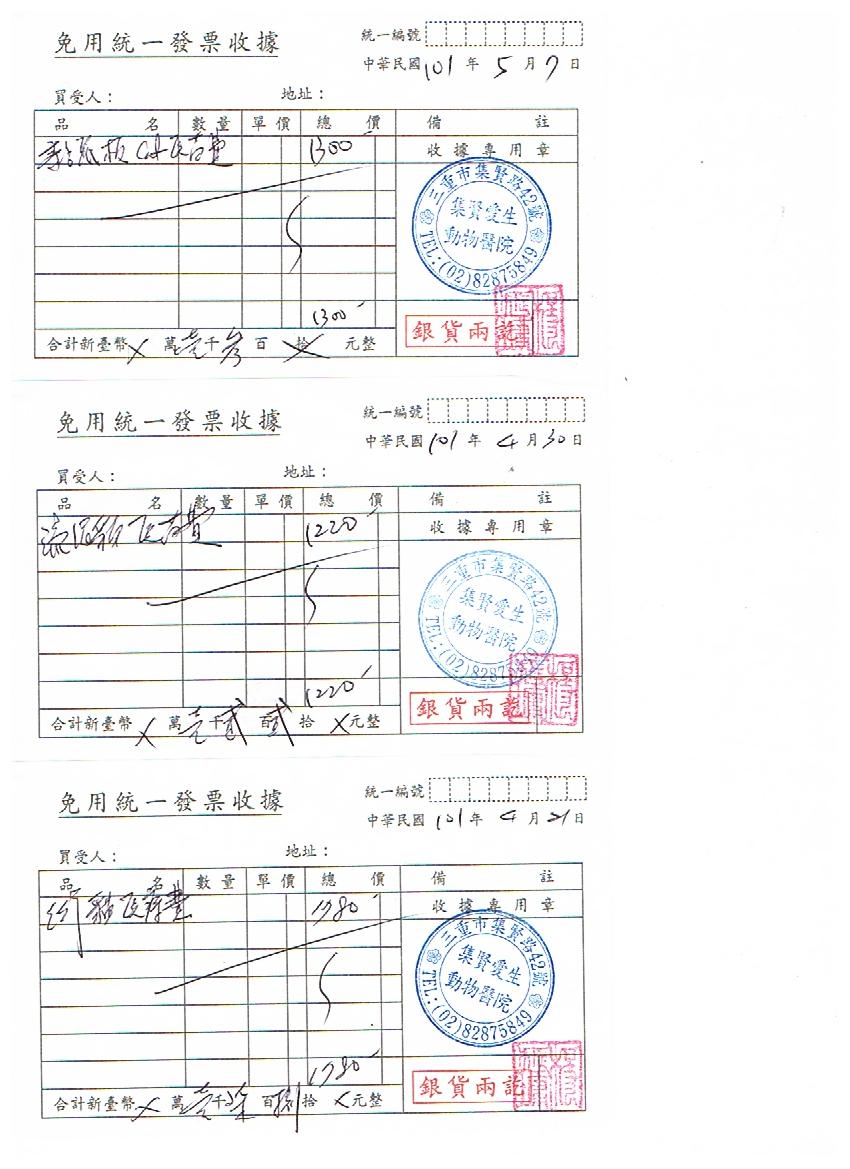 免用統一發票收據
統一編號
中華民國 101 年 5 月 7 日
買受人: 地址:
品名 數量 單價 總價 備註
1300 收據專用章
三重市集賢路42號
集賢愛生
動物醫院
TEL:(02)82875849
1300
銀貨兩訖
合計新臺幣 X 萬 壹 千 參 百 X 拾 元整
免用統一發票收據
統一編號
中華民國 101 年 4 月 30 日
買受人: 地址:
品名 數量 單價 總價 備註
費 1220 收據專用章
三重市集賢路42號
集賢愛生
動物醫院
TEL:(02)82875849
1220
銀貨兩訖
合計新臺幣 X 萬 壹 千 貳 百 貳 拾 X 元整
免用統一發票收據
統一編號
中華民國 101 年 4 月 21 日
買受人: 地址:
品名 數量 單價 總價 備註
貓医療費 1780 收據專用章
三重市集賢路42號
集賢愛生
動物醫院
TEL:(02)82875849
1780
銀貨兩訖
合計新臺幣 X 萬 壹 千 柒 百 捌 拾 X 元整